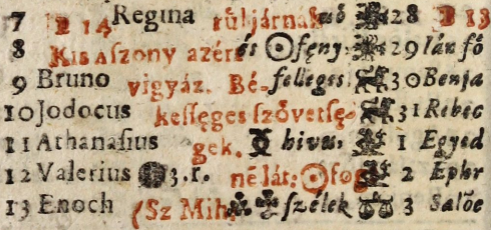 7 E 14 Regina rúljárnak nő 28 E 13
8 Kis Aszony azért és ʘ fęny: 29 Ján fő
9 Bruno vigyáz. Bé- felleges 30 Benja
10 Jodocus kessęges szövetsę- 31 Rebec
11 Athanasius gek. ☿ hivus, 1 Egyed
12 Valerius 3. r. ne lát: ʘ fog 2 Ephr
13 Enoch (Sz Mih. szélek 3 Salőe